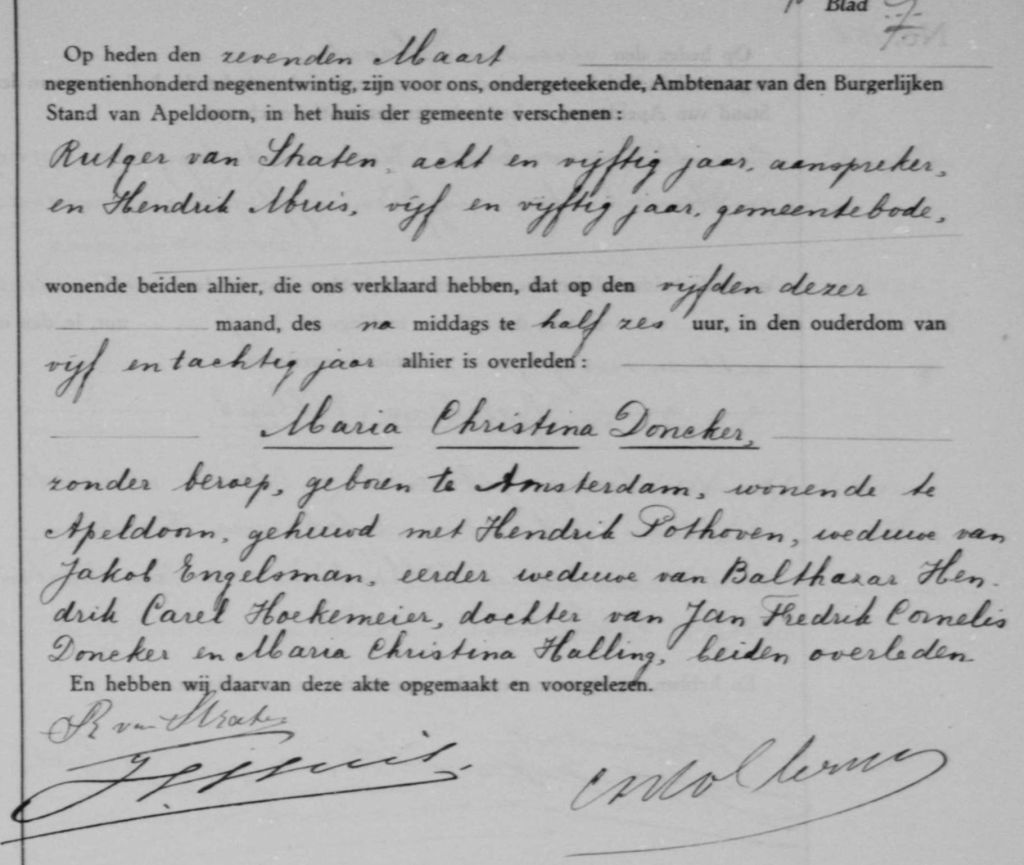 Blad 7
Op heden den zevenden Maart
negentienhonderd negenentwintig, zijn voor ons, ondergeteekende, Ambtenaar van den Burgerlijken
Stand van Apeldoorn, in het huis der gemeente verschenen:
Rutger van Straten, acht en vijftig jaar, aanspreker,
en Hendrik Muis, vijf en vijftig jaar, gemeentebode,
wonende beiden alhier, die ons verklaard hebben, dat op den vijfden dezer
maand, des na middags te half zes uur, in den ouderdom van
vijf en tachtig jaar alhier is overleden:
Maria Christina Doncker,
zonder beroep, geboren te Amsterdam, wonende te
Apeldoorn, gehuwd met Hendrik Pothoven, weduwe van
Jakob Engelsman, eerder weduwe van Balthazar Hen-
drik Carel Hoekemeier, dochter van Jan Fredrik Cornelis
Doncker en Maria Christina Halling, beiden overleden.
En hebben wij daarvan deze akte opgemaakt en voorgelezen.
R van Straten